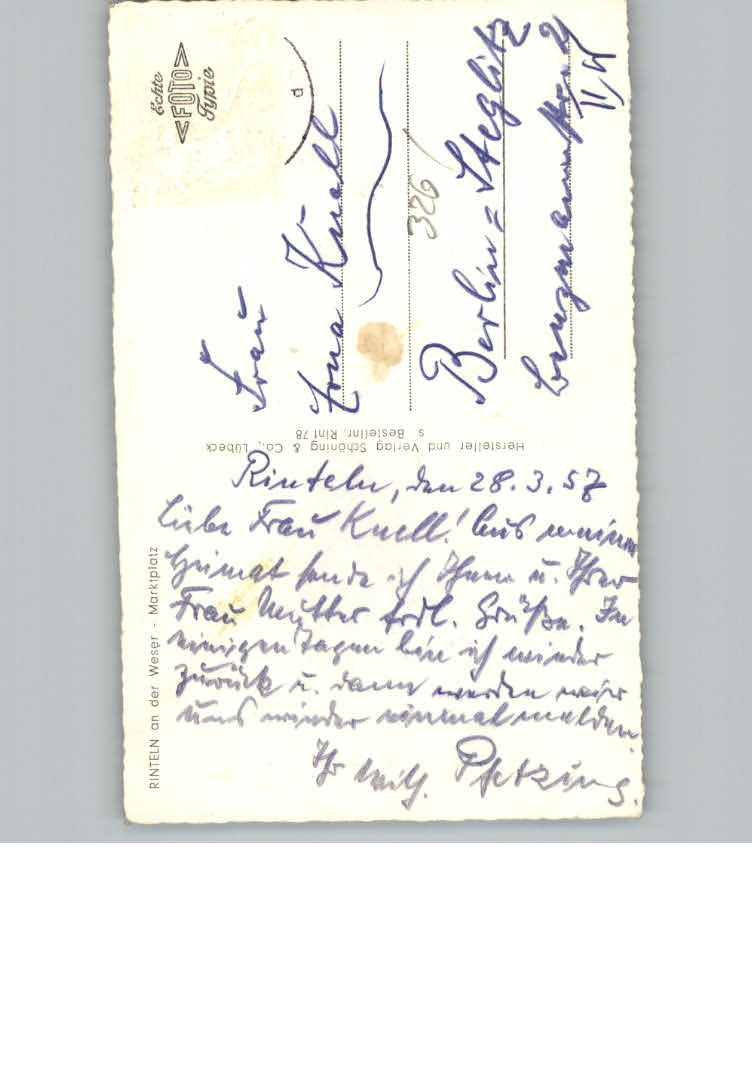 Rinteln, den 28.3.57
Liebe Frau Knell! Aus meiner
Heimat sende ich Ihnen u. Ihrer
Frau Mutter frdl. Grüße. In
einigen Tagen bin ich wieder
zurück u. dann werden wir
uns wieder einmal melden.
Ihr Wilh. Pfetzing.
RINTELN an der Weser - Marktplatz
Hersteller und Verlag Schöning & Co., Lübeck
s Bestellnr. Rint 78
Echte
<FOTO>
Typie
d
Frau
Erna Knell
326
Berlin = Steglitz